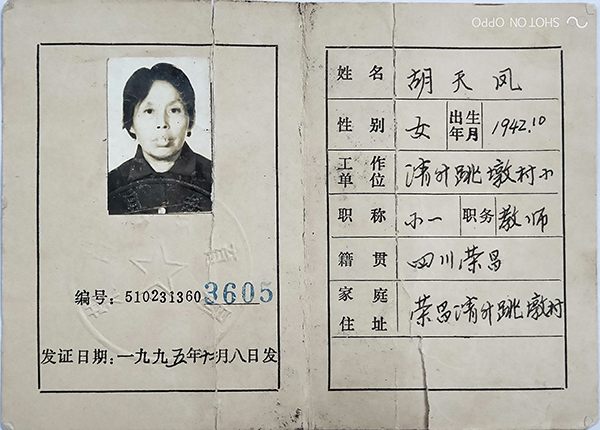 SHOT ON OPPO
编号：5102313603605
发证日期：一九九五年十月八日发
姓名 胡天凤
性别 女 出生年月 1942.10
工作单位 清升跳墩村小
职称 小一 职务 教师
籍贯 四川荣昌
家庭住址 荣昌清升跳墩村